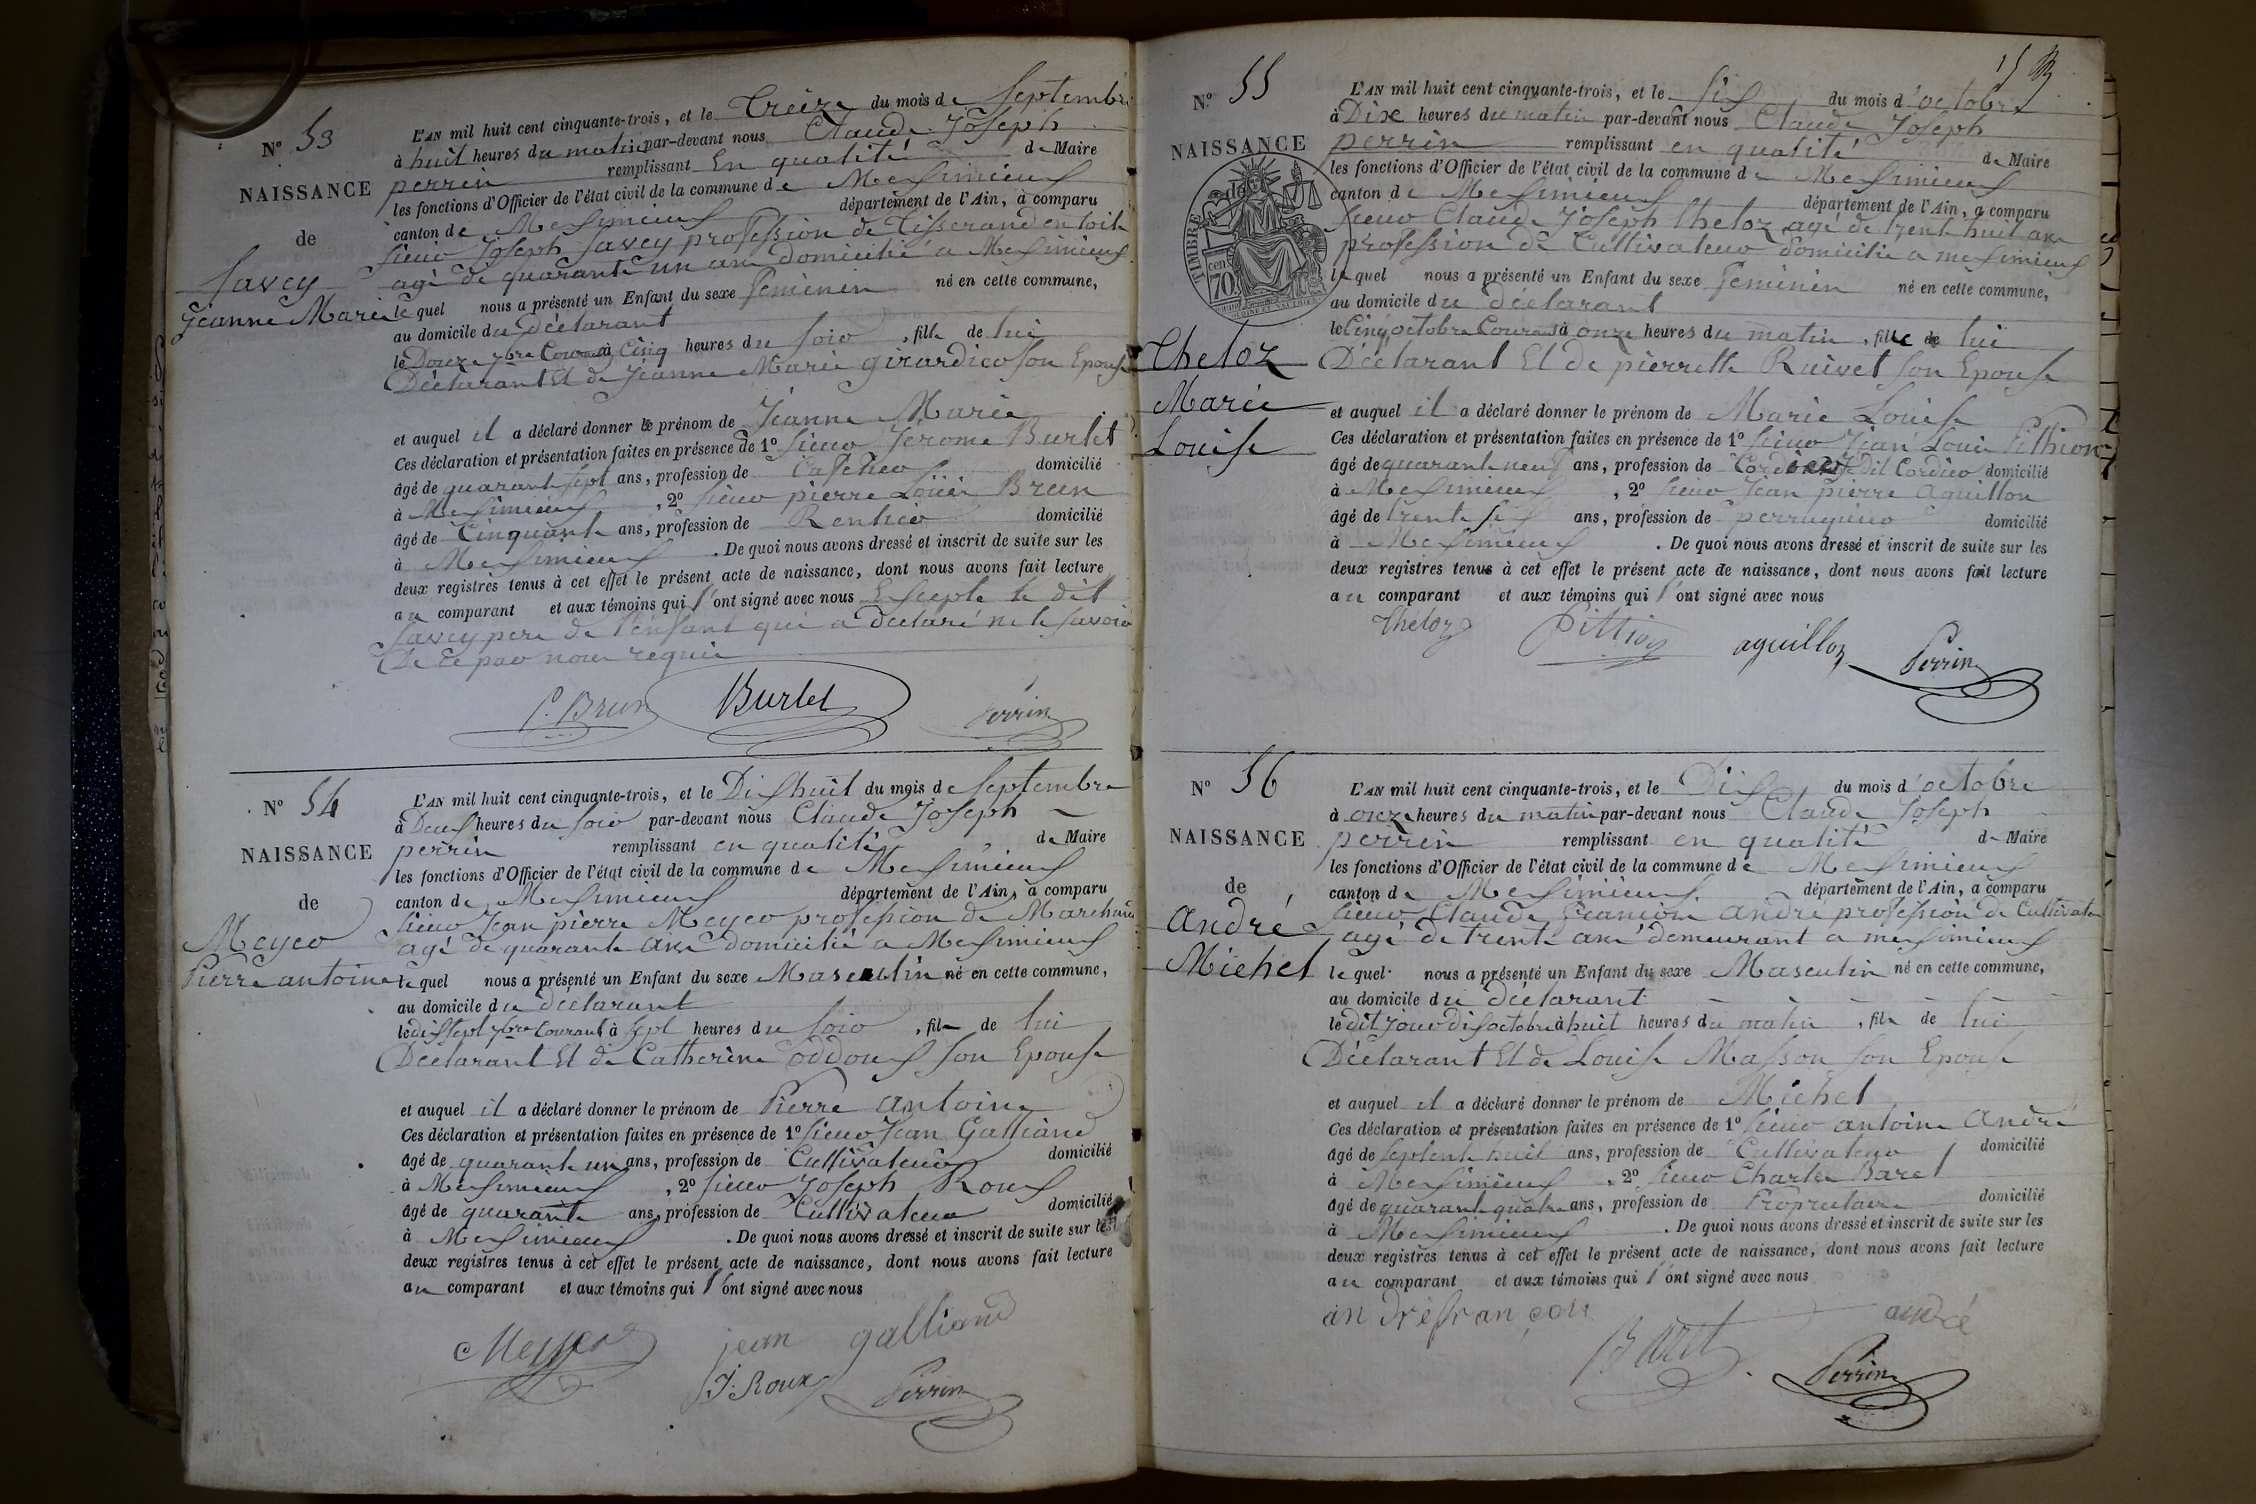 N.º 53
NAISSANCE
de
Savey
Jeanne Marie
L'AN mil huit cent cinquante-trois, et le Treize du mois de Septembre
à huit heures du matin par-devant nous Claude Joseph
perrin remplissant En qualité de Maire
les fonctions d'Officier de l'état civil de la commune de Meximieux
canton de Meximieux département de l'Ain, a comparu
Sieur Joseph Savey profession de Tisserand en toile
agé de quarante un ans domicilié a Meximieux
le quel nous a présenté un Enfant du sexe féminin né en cette commune,
au domicile du déclarant
le Douze 7bre Courant à Cinq heures du soir, fille de lui
Déclarant Et de Jeanne Marie girardier son Epouse
et auquel il a déclaré donner le prénom de Jeanne Marie
Ces déclaration et présentation faites en présence de 1º Sieur Jérome Burlet
âgé de quarante sept ans, profession de Cafetier domicilié
à Meximieux, 2º Sieur pierre Loüis Brun
âgé de Cinquante ans, profession de Rentier domicilié
à Meximieux. De quoi nous avons dressé et inscrit de suite sur les
deux registres tenus à cet effet le présent acte de naissance, dont nous avons fait lecture
au comparant et aux témoins qui l'ont signé avec nous Excepte le dit
Savey pere de l'enfant qui a déclaré ne le savoir
De ce par nous requis
P. Brun Burlet Perrin
Nº 54
NAISSANCE
de
Meyer
Pierre antoine
L'AN mil huit cent cinquante-trois, et le Dix huit du mois de Septembre
à Deux heures du soir par-devant nous Claude Joseph
perrin remplissant en qualité de Maire
les fonctions d'Officier de l'état civil de la commune de Meximieux
canton de Meximieux département de l'Ain, a comparu
Sieur Jean pierre Meyer profession de Marchand
agé de quarante ans domicilié a Meximieux
le quel nous a présenté un Enfant du sexe Masculin né en cette commune,
au domicile du déclarant
le dix sept 7bre Courant à sept heures du soir, fils de lui
Déclarant Et de Catherine oddoux son Epouse
et auquel il a déclaré donner le prénom de Pierre antoine
Ces déclaration et présentation faites en présence de 1º Sieur Jean Galliand
âgé de quarante un ans, profession de Cultivateur domicilié
à Meximieux, 2º Sieur Joseph Roux
âgé de quarante ans, profession de Cultivateur domicilié
à Meximieux. De quoi nous avons dressé et inscrit de suite sur les
deux registres tenus à cet effet le présent acte de naissance, dont nous avons fait lecture
au comparant et aux témoins qui l'ont signé avec nous
Meyer jean galliand
J. Roux Perrin
15
N.º 55
NAISSANCE
TIMBRE
70 cen
Theloz
Marie
Louise
L'AN mil huit cent cinquante-trois, et le six du mois d'octobre
à Dix heures du matin par-devant nous Claude Joseph
perrin remplissant en qualité de Maire
les fonctions d'Officier de l'état civil de la commune de Meximieux
canton de Meximieux département de l'Ain, a comparu
Sieur Claude Joseph Theloz agé de trente huit ans
profession de Cultivateur domicilié a meximieux
le quel nous a présenté un Enfant du sexe féminin né en cette commune,
au domicile du déclarant
le Cinq octobre Courant à onze heures du matin, fille de lui
Déclarant Et de pierrette Ruivet son Epouse
et auquel il a déclaré donner le prénom de Marie Louise
Ces déclaration et présentation faites en présence de 1º Sieur Jean Louis Pithion
âgé de quarante neuf ans, profession de dit Cordier domicilié
à Meximieux, 2º Sieur Jean pierre aguillon
âgé de trente six ans, profession de perruquier domicilié
à Meximieux. De quoi nous avons dressé et inscrit de suite sur les
deux registres tenus à cet effet le présent acte de naissance, dont nous avons fait lecture
au comparant et aux témoins qui l'ont signé avec nous
Theloz Pittion aguillon Perrin
Nº 56
NAISSANCE
de
André
Michel
L'AN mil huit cent cinquante-trois, et le Dix du mois d'octobre
à onze heures du matin par-devant nous Claude Joseph
perrin remplissant en qualité de Maire
les fonctions d'Officier de l'état civil de la commune de Meximieux
canton de Meximieux département de l'Ain, a comparu
Sieur Claude françois André profession de Cultivateur
agé de trente ans demeurant a meximieux
le quel nous a présenté un Enfant du sexe Masculin né en cette commune,
au domicile du déclarant
le dit jour dix octobre à huit heures du matin, fils de lui
Déclarant Et de Louise Masson son Epouse
et auquel il a déclaré donner le prénom de Michel
Ces déclaration et présentation faites en présence de 1º Sieur antoine André
âgé de septente huit ans, profession de Cultivateur domicilié
à Meximieux, 2º Sieur Charles Baret
âgé de quarante quatre ans, profession de Propriétaire domicilié
à Meximieux. De quoi nous avons dressé et inscrit de suite sur les
deux registres tenus à cet effet le présent acte de naissance, dont nous avons fait lecture
au comparant et aux témoins qui l'ont signé avec nous
andré françoi Baret andré
Perrin